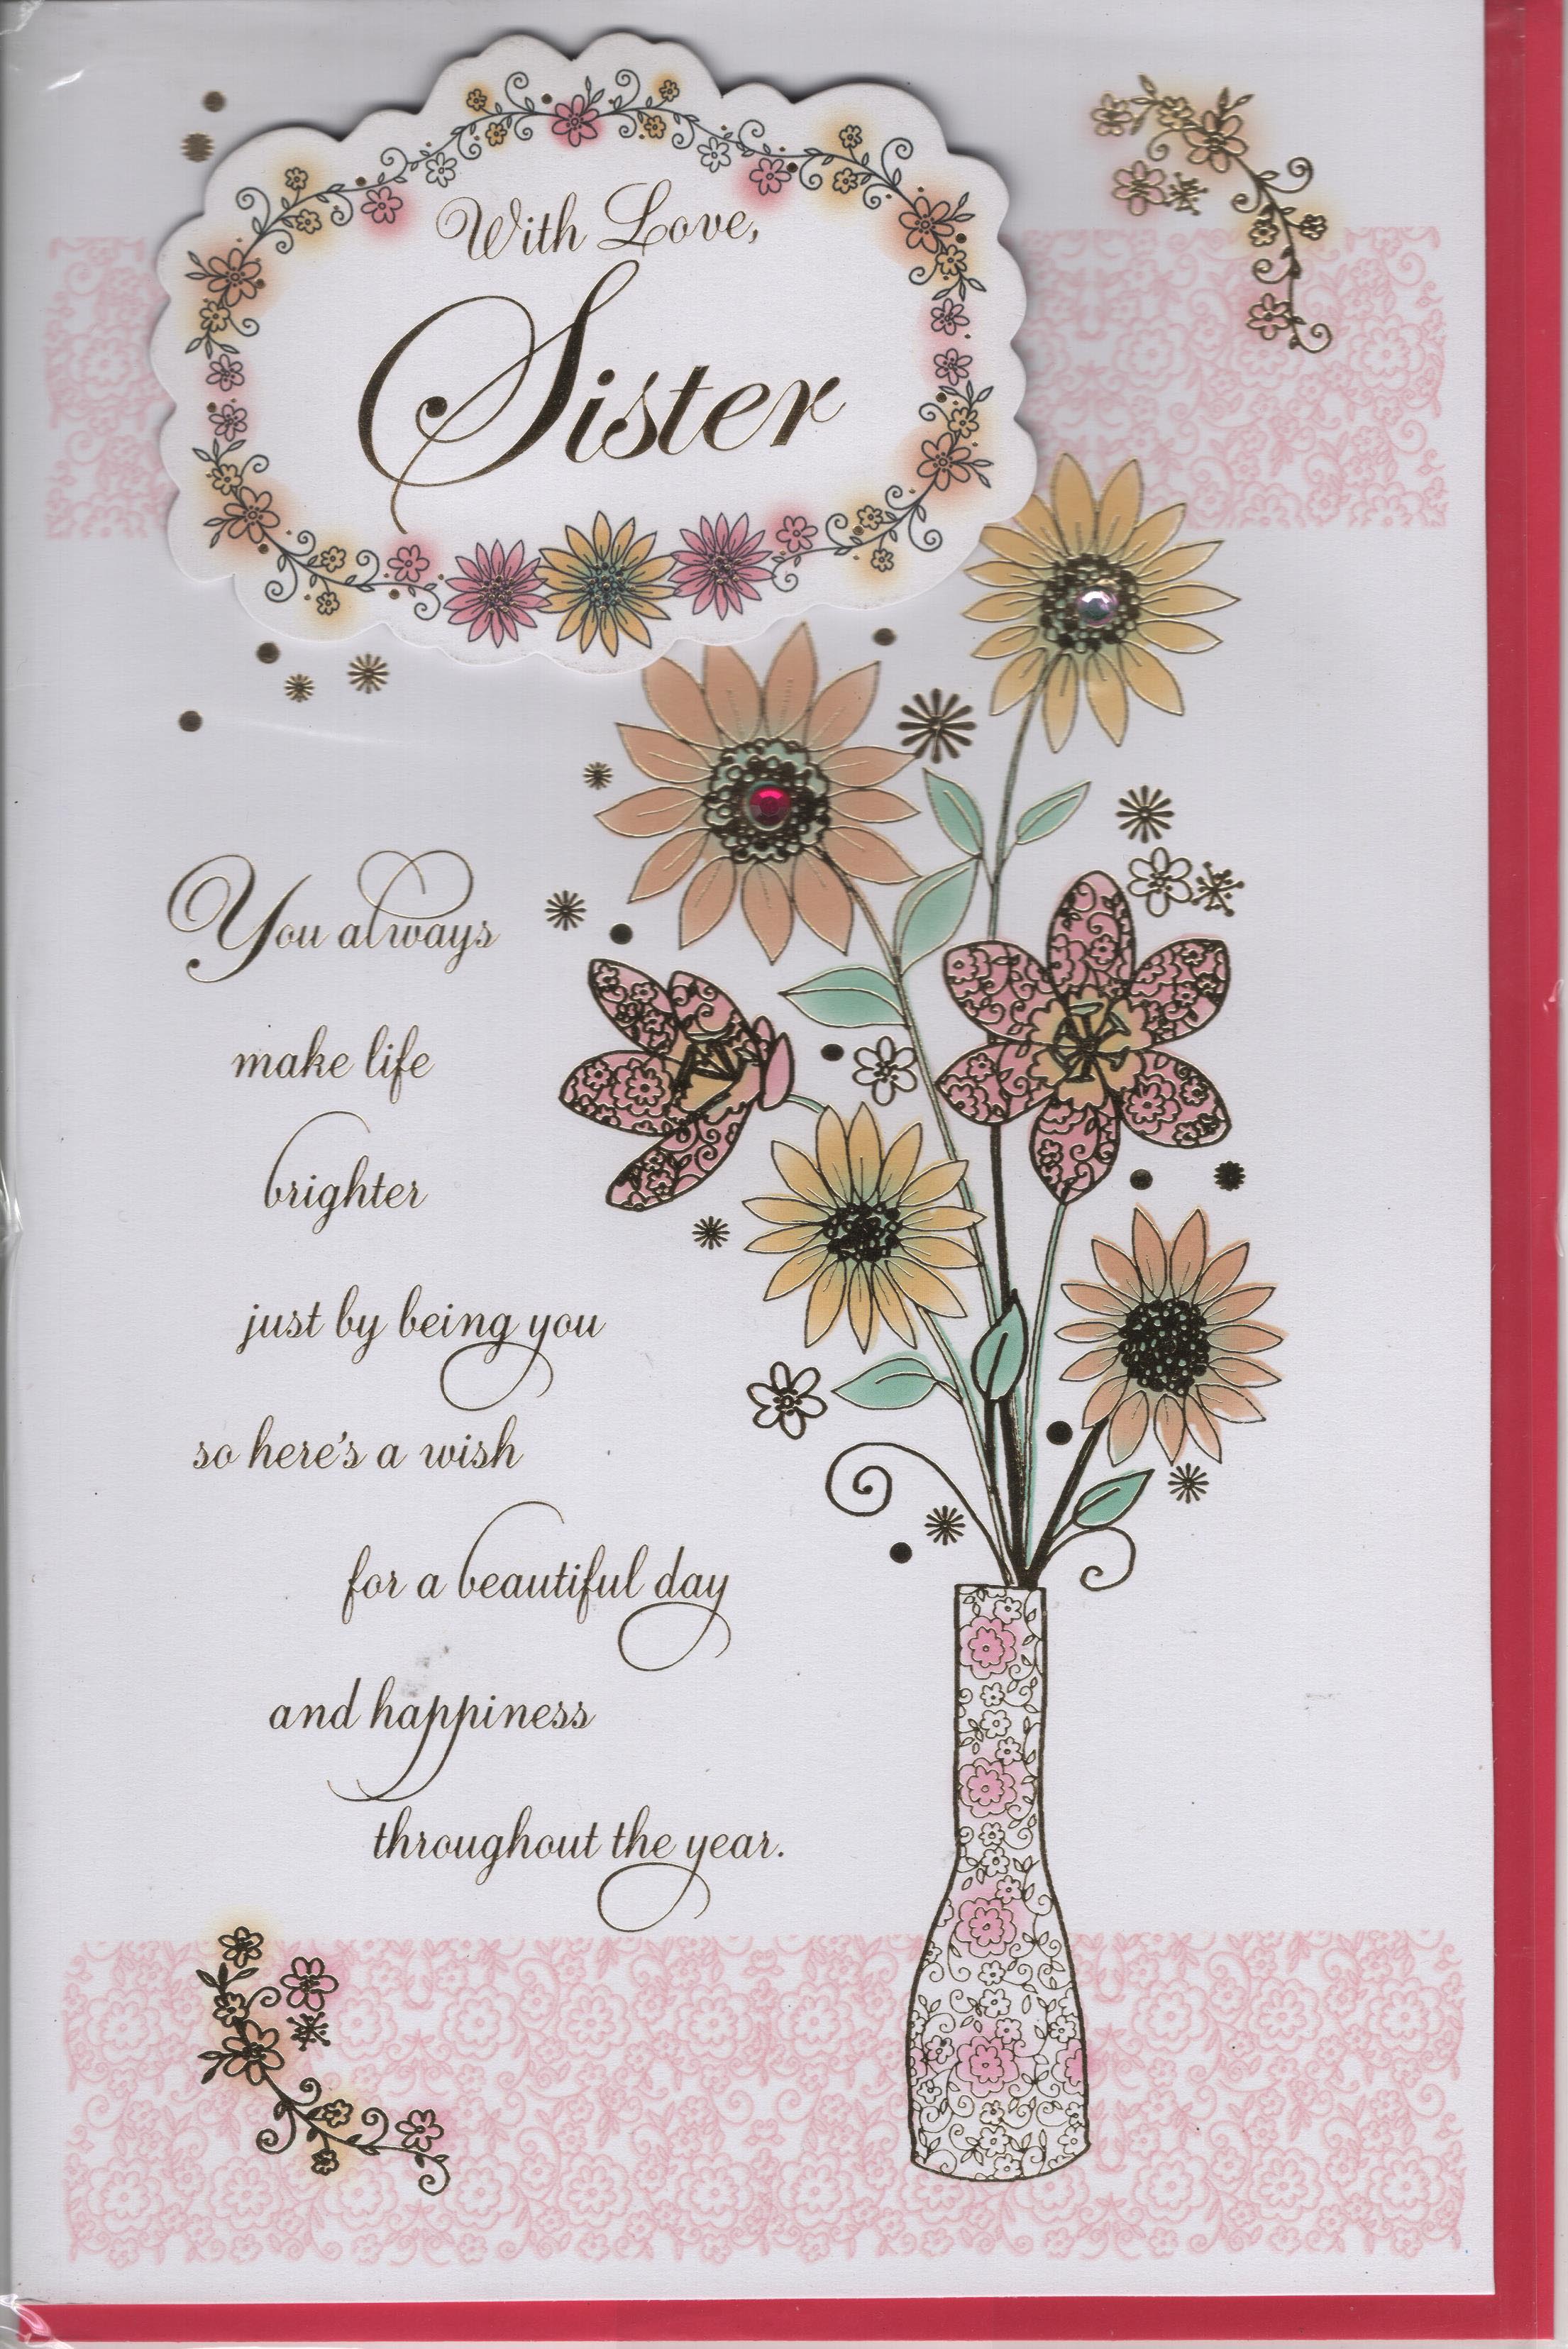 With Love,
Sister
You always
make life
brighter
just by being you
so here's a wish
for a beautiful day
and happiness
throughout the year.